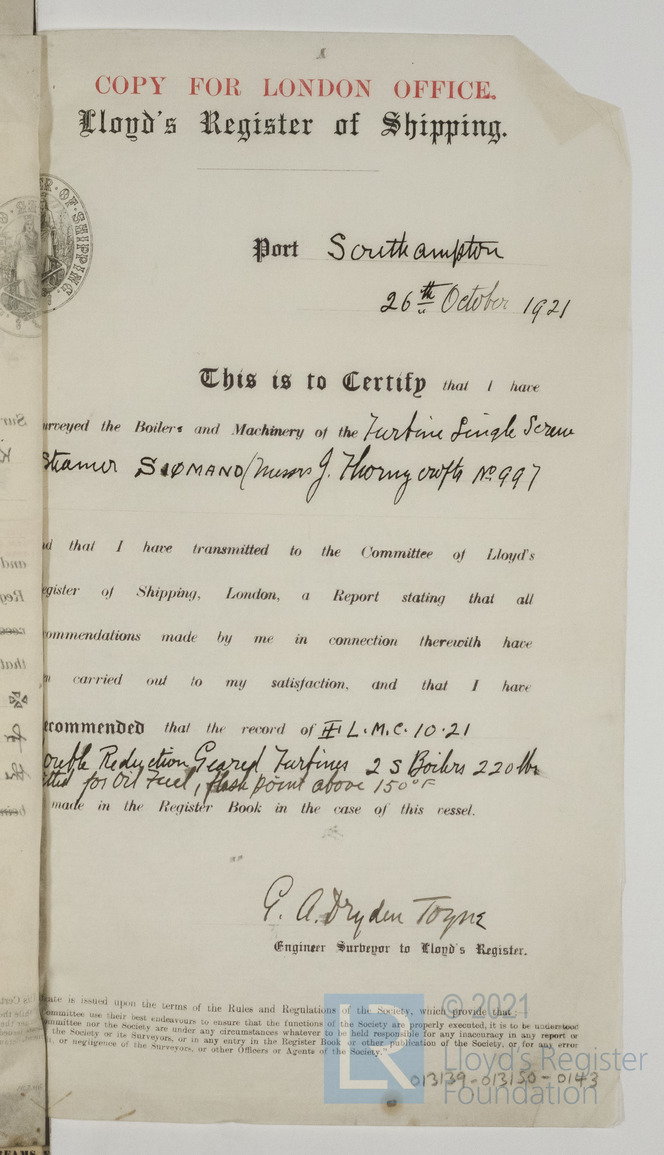 COPY FOR LONDON OFFICE.
Lloyd's Register of Shipping.
OF SHIPPING
Port Southampton
26th October 1921
This is to Certify that I have
urveyed the Boilers and Machinery of the Turbine Single Screw
Steamer SIOMAND (Messrs J. Thornycrofts No 997
nd that I have transmitted to the Committee of Lloyd's
egister of Shipping, London, a Report stating that all
commendations made by me in connection therewith have
n carried out to my satisfaction, and that I have
ecommended that the record of L.M.C. 10.21
ouble Reduction Geared Turbines 2 S Boilers 220 lbs
tted for Oil Fuel, flash point above 150°F
made in the Register Book in the case of this vessel.
G. A. Dryden Toyne
Engineer Surveyor to Lloyd's Register.
cate is issued upon the terms of the Rules and Regulations of the Society, which provide that:
ommittee use their best endeavours to ensure that the functions of the Society are properly executed, it is to be understood
mmittee nor the Society are under any circumstances whatever to be held responsible for any inaccuracy in any report or
the Society or its Surveyors, or in any entry in the Register Book or other publication of the Society, or for any error
, or negligence of the Surveyors, or other Officers or Agents of the Society."
LR © 2021
Lloyd's Register
Foundation
013139-013150-0143